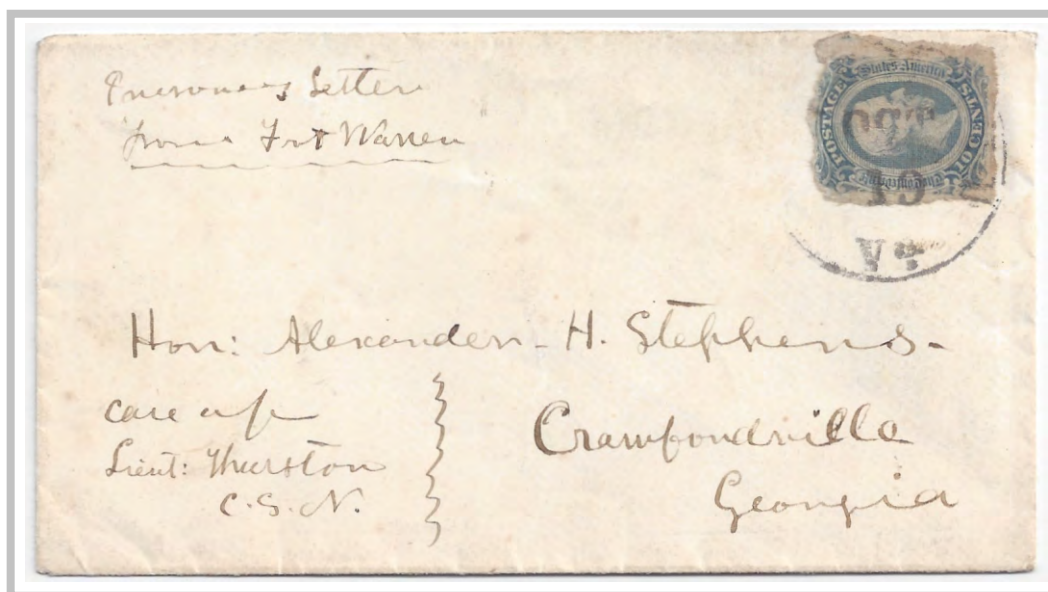 Prisoners Letter
from Fort Warren
States America
POSTAGE
TEN CENTS
OCT
19
Va
Hon: Alexander H. Stephens
care of
Lieut: Thurston
C.S.N.
Crawfordville
Georgia